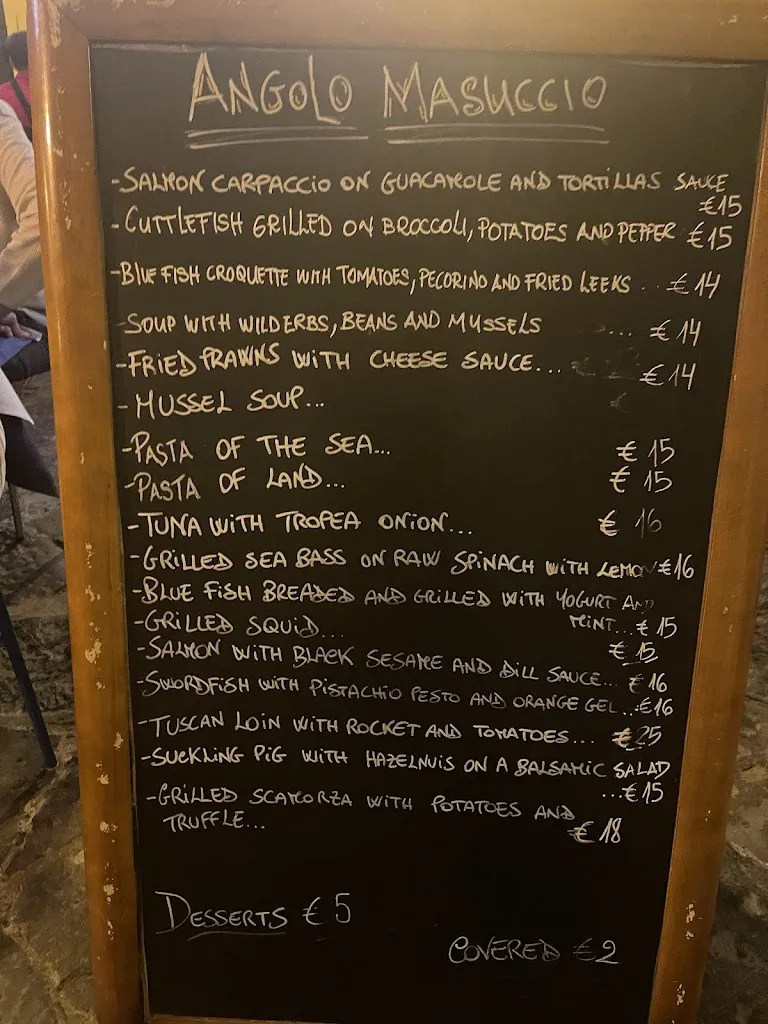 ANGOLO MASUCCIO
-SALMON CARPACCIO ON GUACAMOLE AND TORTILLAS SAUCE
€15
-CUTTLEFISH GRILLED ON BROCCOLI, POTATOES AND PEPPER €15
-BLUE FISH CROQUETTE WITH TOMATOES, PECORINO AND FRIED LEEKS .. €14
-SOUP WITH WILD ERBS, BEANS AND MUSSELS ... €14
-FRIED PRAWNS WITH CHEESE SAUCE... €14
-MUSSEL SOUP...
-PASTA OF THE SEA... € 15
-PASTA OF LAND... € 15
-TUNA WITH TROPEA ONION... € 16
-GRILLED SEA BASS ON RAW SPINACH WITH LEMON €16
-BLUE FISH BREADED AND GRILLED WITH YOGURT AND
MINT...€ 15
-GRILLED SQUID... € 15
-SALMON WITH BLACK SESAME AND DILL SAUCE... €16
-SWORDFISH WITH PISTACHIO PESTO AND ORANGE GEL...€16
-TUSCAN LOIN WITH ROCKET AND TOMATOES... €25
-SUCKLING PIG WITH HAZELNUTS ON A BALSAMIC SALAD
...€15
-GRILLED SCAMORZA WITH POTATOES AND
TRUFFLE... €18
DESSERTS € 5
COVERED €2